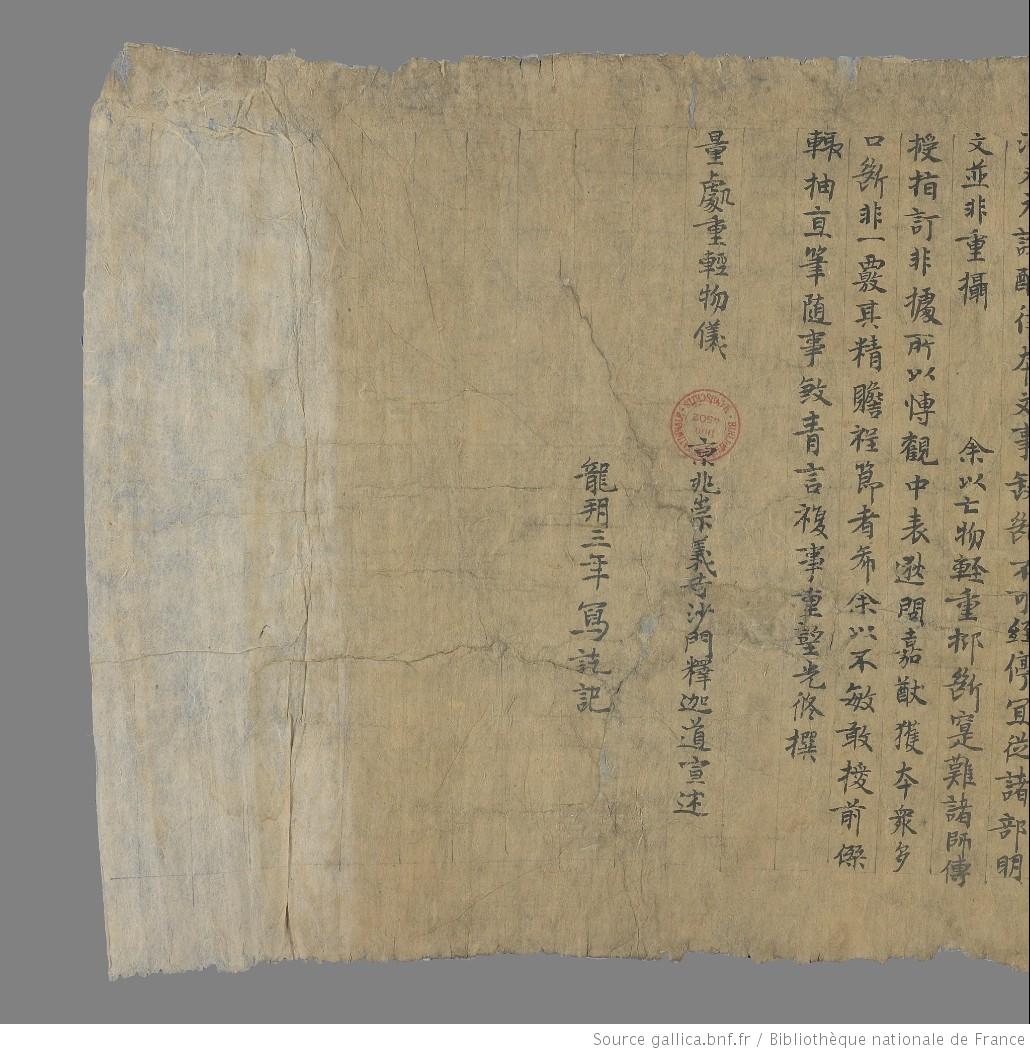 本文事不可停冝從諸部明
文並非重攝　余以亡物輕重抑斷寔難諸師傳
授指訂非據所以慱觀中表逖問嘉猷獲本衆多
口斷非一覈其精贍裎節者希余以不敏敢援前傑
輙抽直筆随事敘言複事重先修撰
量處重輕物儀　京兆崇義寺沙門釋迦道宣述
龍朔三年寫訖記
Source gallica.bnf.fr / Bibliothèque nationale de France